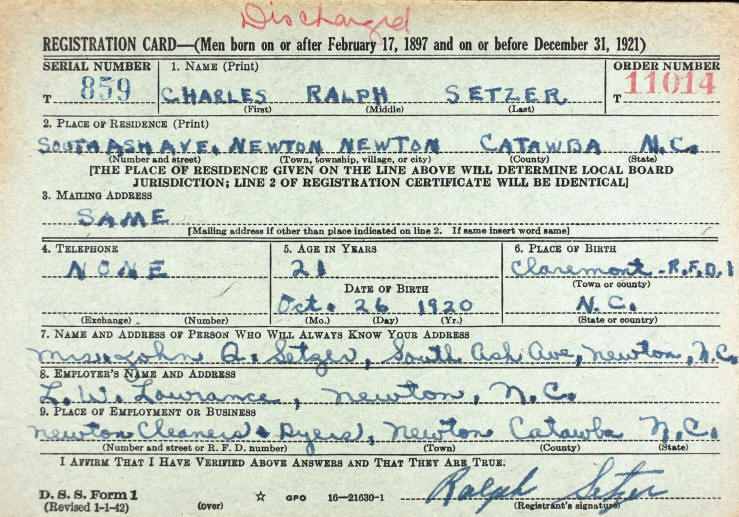 Discharged
REGISTRATION CARD—(Men born on or after February 17, 1897 and on or before December 31, 1921)
SERIAL NUMBER 1. NAME (Print) ORDER NUMBER
T 859 CHARLES RALPH SETZER T 11014
(First) (Middle) (Last)
2. PLACE OF RESIDENCE (Print)
SOUTH ASH AVE. NEWTON NEWTON CATAWBA N.C.
(Number and street) (Town, township, village, or city) (County) (State)
[THE PLACE OF RESIDENCE GIVEN ON THE LINE ABOVE WILL DETERMINE LOCAL BOARD
JURISDICTION; LINE 2 OF REGISTRATION CERTIFICATE WILL BE IDENTICAL]
3. MAILING ADDRESS
SAME
[Mailing address if other than place indicated on line 2. If same insert word same]
4. TELEPHONE 5. AGE IN YEARS 6. PLACE OF BIRTH
NONE 21 Claremont R.F.D. 1
DATE OF BIRTH (Town or county)
Oct. 26 1920 N.C.
(Exchange) (Number) (Mo.) (Day) (Yr.) (State or country)
7. NAME AND ADDRESS OF PERSON WHO WILL ALWAYS KNOW YOUR ADDRESS
Mrs. John Q. Setzer, South Ash Ave, Newton, N.C.
8. EMPLOYER'S NAME AND ADDRESS
L. W. Lowrance, Newton, N.C.
9. PLACE OF EMPLOYMENT OR BUSINESS
Newton Cleaners & Dyers, Newton Catawba N.C.
(Number and street or R. F. D. number) (Town) (County) (State)
I AFFIRM THAT I HAVE VERIFIED ABOVE ANSWERS AND THAT THEY ARE TRUE.
D. S. S. Form 1
(Revised 1-1-42) (over) ☆ GPO 16—21630-1 Ralph Setzer
(Registrant's signature)